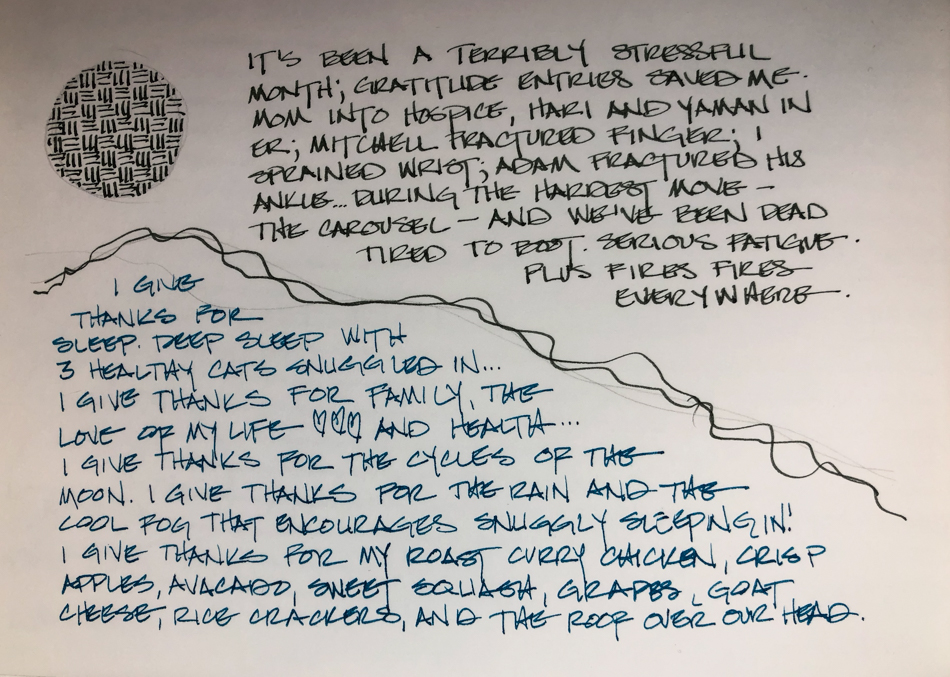 IT'S BEEN A TERRIBLY STRESSFUL
MONTH; GRATITUDE ENTRIES SAVED ME.
MOM INTO HOSPICE, HARI AND YAMAN IN
ER; MITCHELL FRACTURED FINGER; I
SPRAINED WRIST; ADAM FRACTURED HIS
ANKLE... DURING THE HARDEST MOVE –
THE CAROUSEL – AND WE'VE BEEN DEAD
TIRED TO BOOT. SERIOUS FATIGUE.
PLUS FIRES FIRES
EVERYWHERE.
I GIVE
THANKS FOR
SLEEP. DEEP SLEEP WITH
3 HEALTHY CATS SNUGGLED IN...
I GIVE THANKS FOR FAMILY, THE
LOVE OF MY LIFE ♡♡♡ AND HEALTH...
I GIVE THANKS FOR THE CYCLES OF THE
MOON. I GIVE THANKS FOR THE RAIN AND THE
COOL FOG THAT ENCOURAGES SNUGGLY SLEEPING IN!
I GIVE THANKS FOR MY ROAST CURRY CHICKEN, CRISP
APPLES, AVACADO, SWEET SQUASH, GRAPES, GOAT
CHEESE, RICE CRACKERS, AND THE ROOF OVER OUR HEAD.